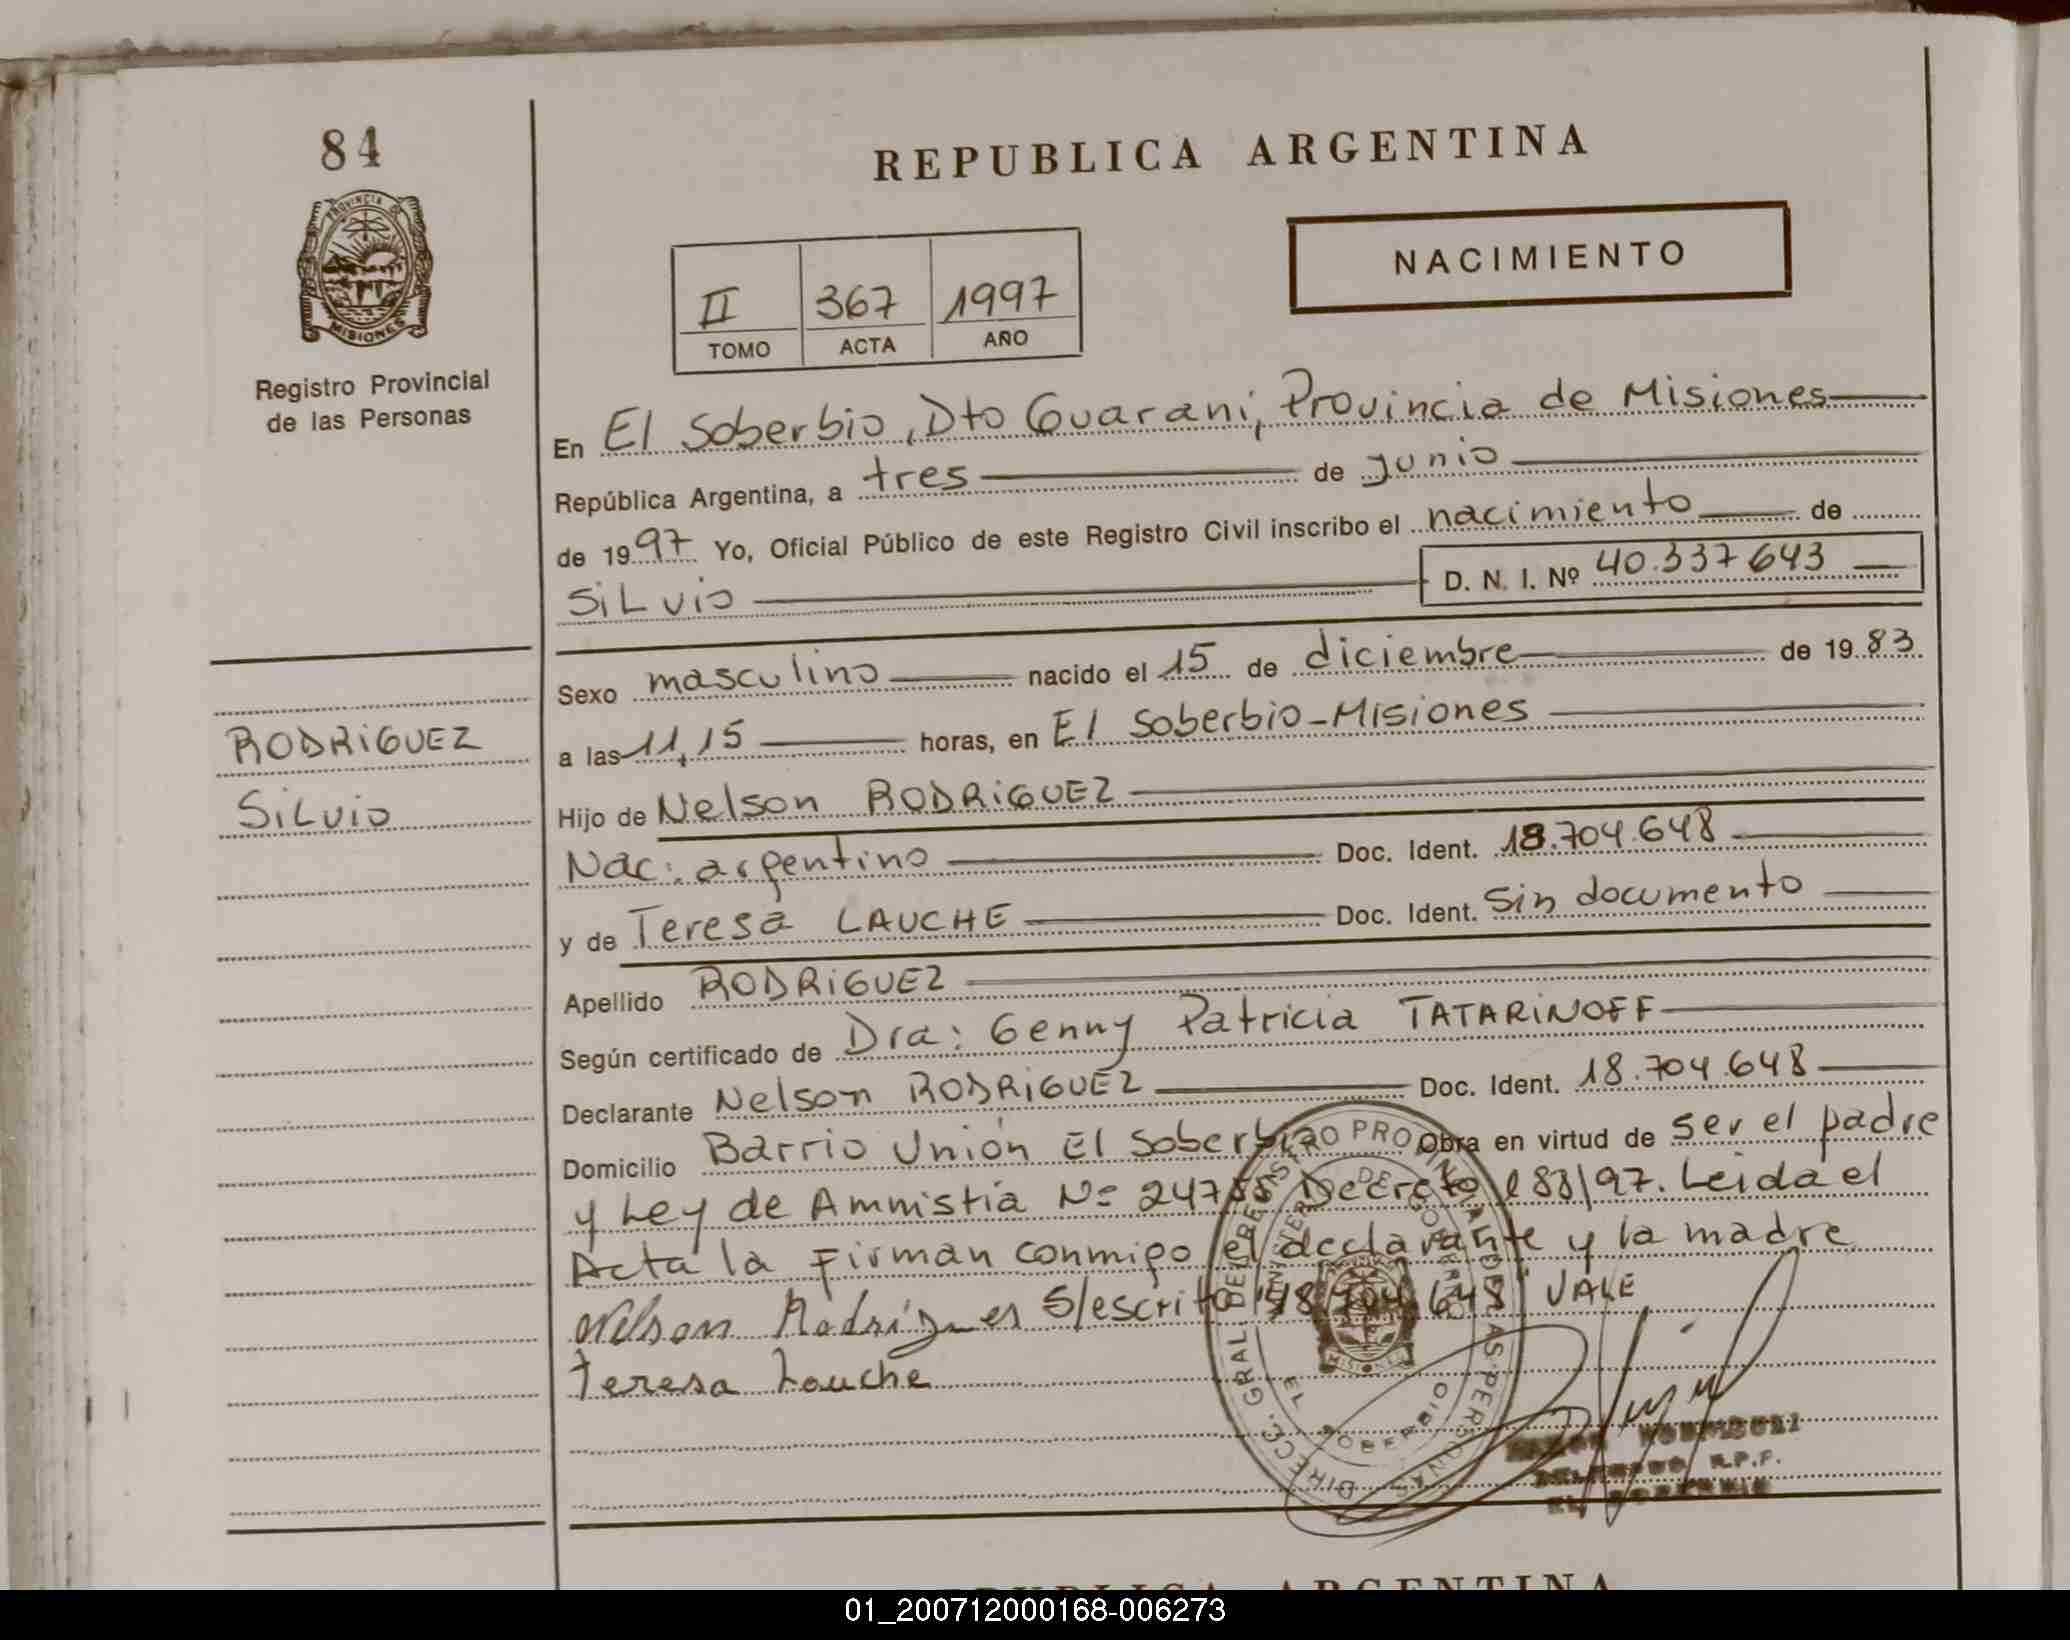 84
PROVINCIA DE
MISIONES
Registro Provincial
de las Personas
RODRIGUEZ
SiLvio
REPUBLICA ARGENTINA
NACIMIENTO
II 367 1997
TOMO ACTA AÑO
En El Soberbio, Dto Guarani, Provincia de Misiones
República Argentina, a tres de junio
de 1997 Yo, Oficial Público de este Registro Civil inscribo el nacimiento de
SiLvio D. N. I. Nº 40.337643
Sexo masculino nacido el 15 de diciembre de 1983
a las 11,15 horas, en El Soberbio-Misiones
Hijo de Nelson RODRiGUEZ
Nac: argentino Doc. Ident. 18.704.648
y de Teresa LAUCHE Doc. Ident. Sin documento
Apellido RODRiGUEZ
Según certificado de Dra: Genny Patricia TATARiNOFF
Declarante Nelson RODRiGUEZ Doc. Ident. 18.704.648
Domicilio Barrio Unión El Soberbio Obra en virtud de ser el padre
y Ley de Amnistia Nº 24755 Decreto 183/97. Leida el
Acta la Firman conmigo el declarante y la madre
Nelson Rodrígues S/escrito "18.704.648" VALE
Teresa Lauche
DIRECC. GRAL. DEL REGISTRO PROVINCIAL DE LAS PERSONAS
MINISTERIO DE GOBIERNO
EL SOBERBIO
MISIONES
R.P.P.
REPUBLICA ARGENTINA
01_200712000168-006273